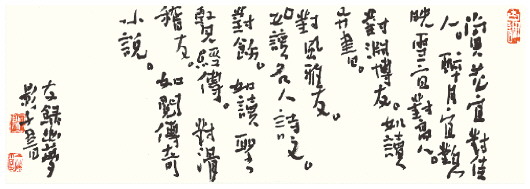 賞花宜對佳
人。醉月宜對韻
映雪宜對高人。
對淵博友。如讀
异書。
對風雅友。
如讀名人詩文。
對飭。如讀聖
賢經傳。對滑
稽友。如閱傳奇
小說。
右錄幽夢
影